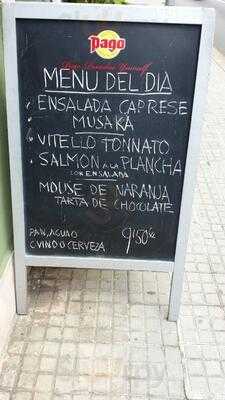 pago
MENU DEL DIA
- ENSALADA CAPRESE
MUSAKA
- VITELLO TONNATO
- SALMON A LA PLANCHA
CON ENSALADA
MOUSE DE NARANJA
TARTA DE CHOCOLATE
PAN, AGUA O
C VINO O CERVEZA
9,50€